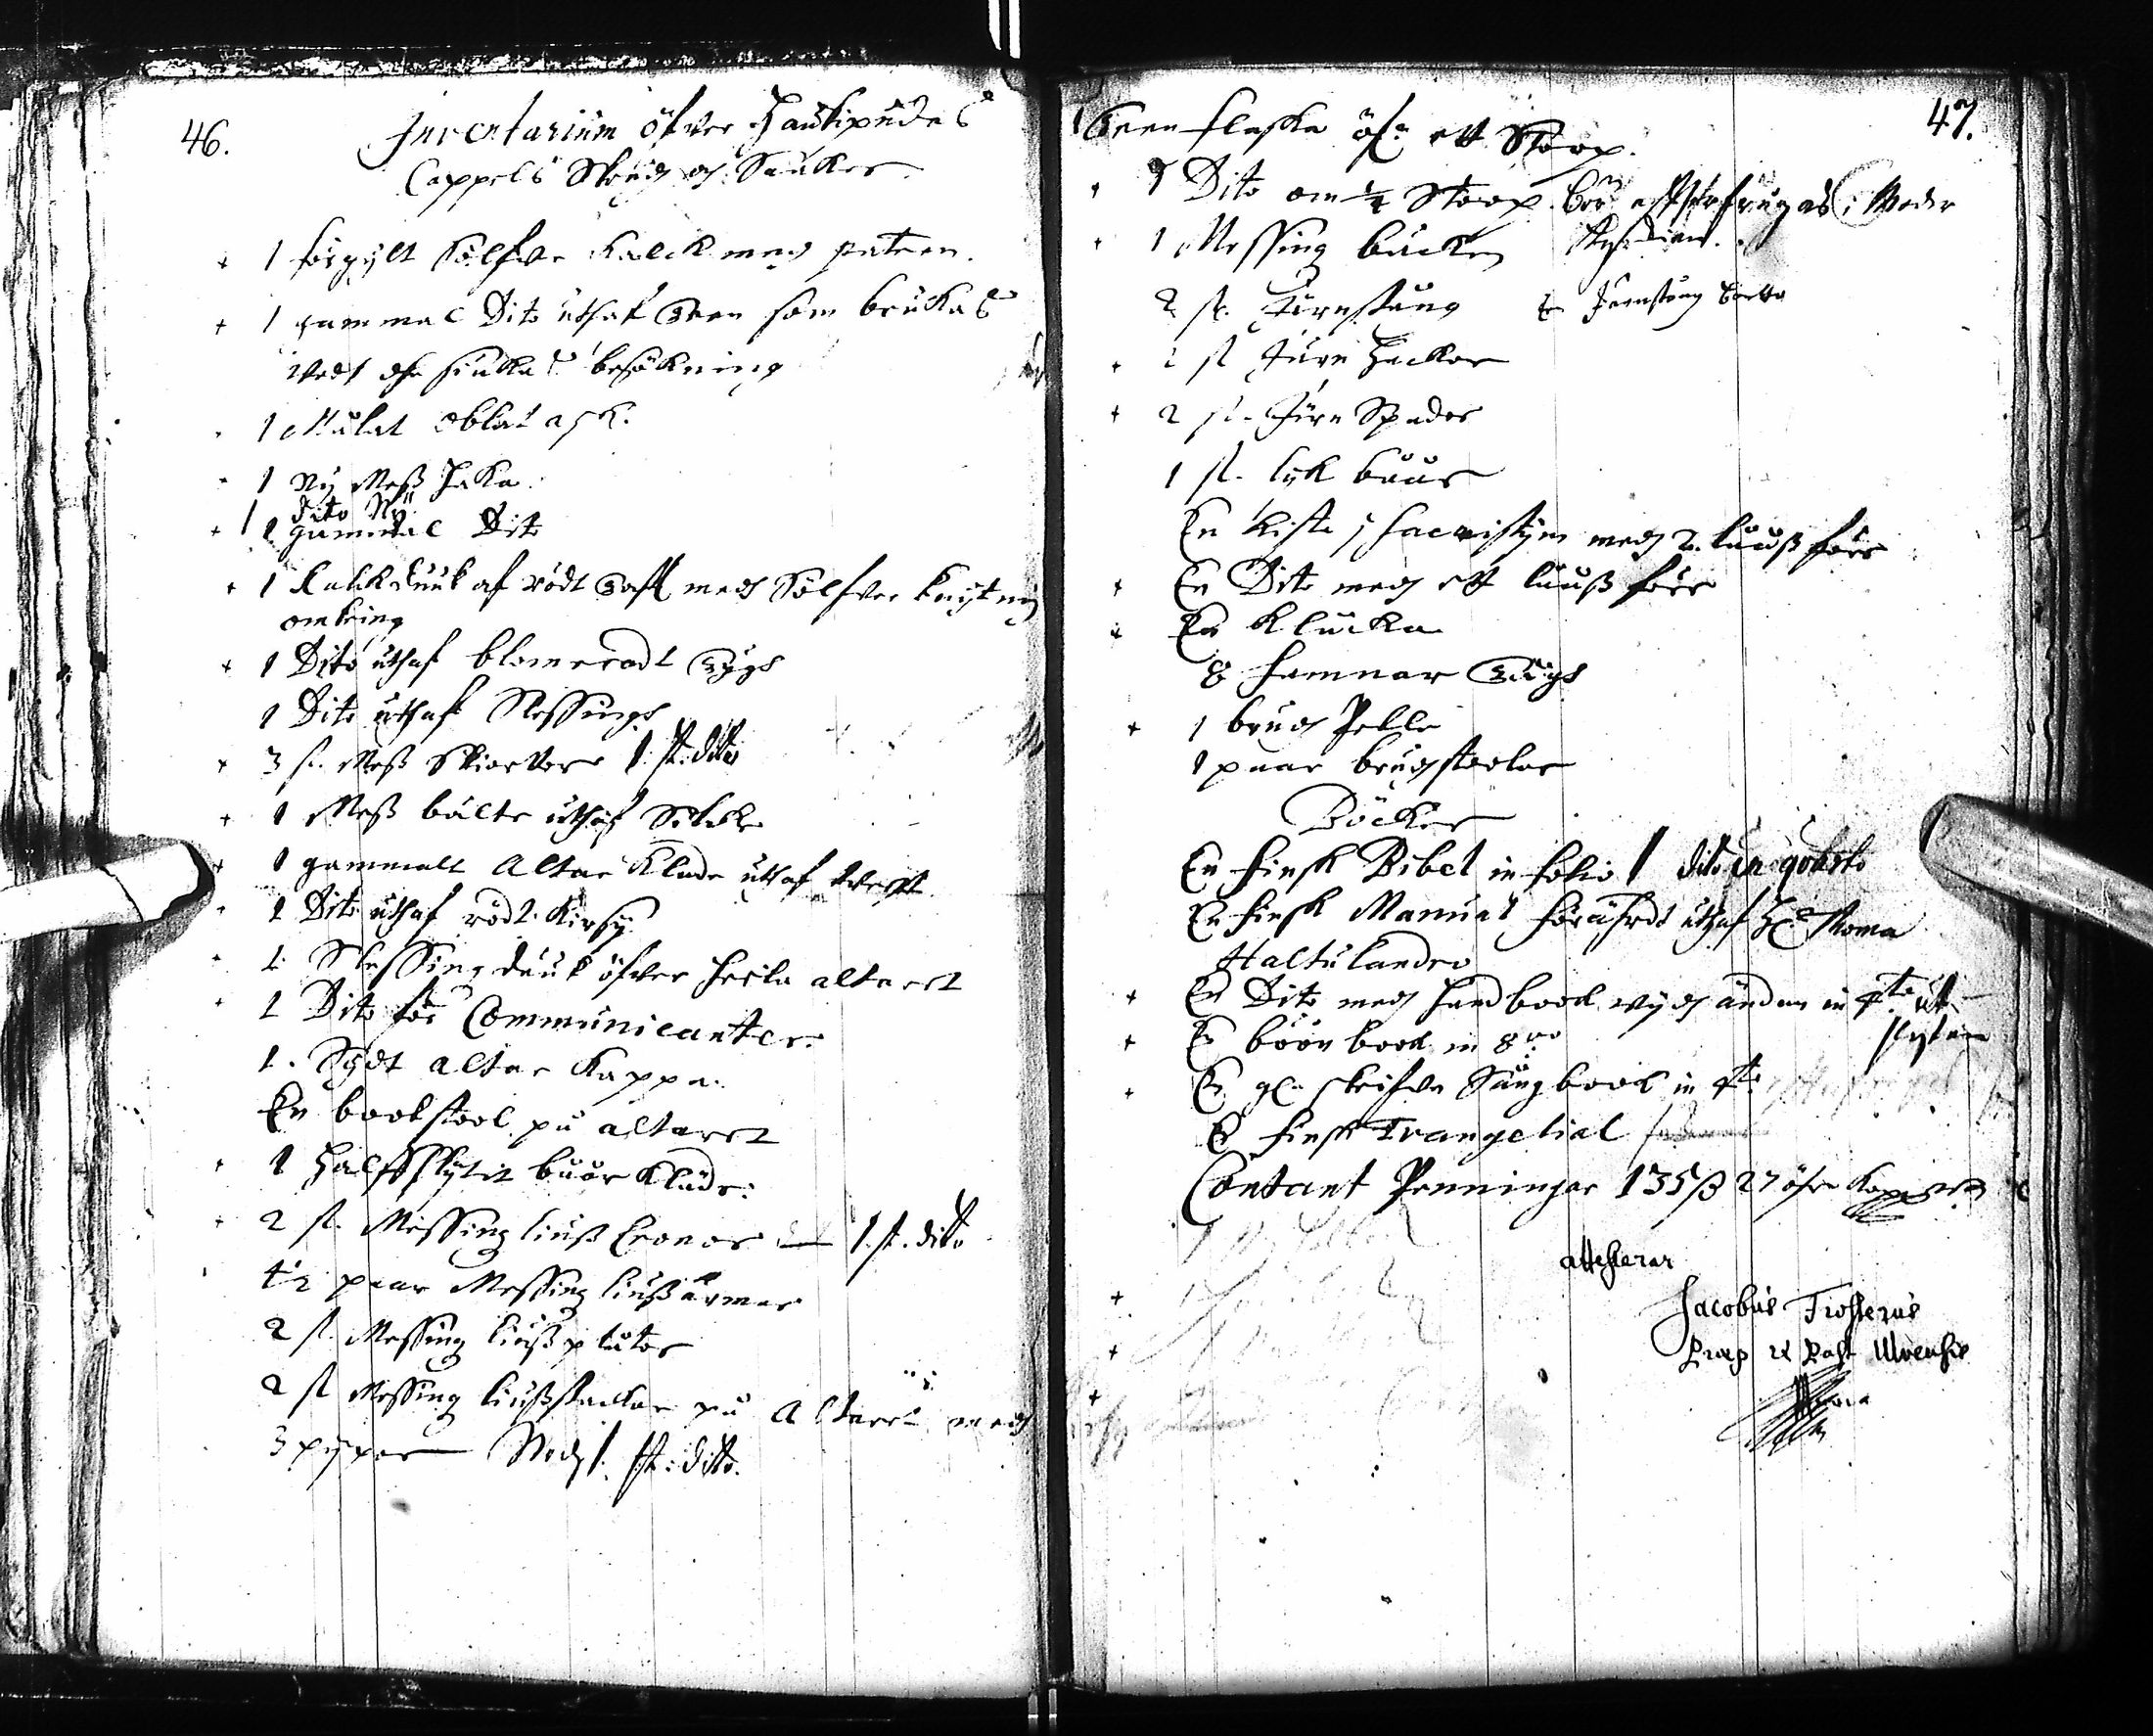 46.
Inventarium öfver Haukipudas
Cappels Skrud och Saaker
1 förgÿlt Sölfver Kalck med pateen.
1 gammal Dito uthaf Teen som brukas
vedh siukas besökning
1 Målat oblat ask.
1 Nÿ Mess Haka.
1 dito Nÿ
1 gammal Dito
1 Kalckduuk af rödt Taft med Sölfver knÿtning
omkring
1 Dito uthaf blomeradt Tÿgh
1 Dito uthaf Nessings
3 st. Mess Skiortor 1. st. dito
1 Mess bälte uthaf Silcke
1 gammalt Altar Kläde uthaf
1 Dito uthaf rödt Kirsÿ
1 duuk öfver heela altaret
1 Dito för Communicanter.
1. Sÿdt altar Kappa.
En bookstool på altaret
1 Halfslÿtit båår Kläde.
2 st. Messing liuss Cronor 1. st. dito
1 2 paar Messing liussarmar
2 st. Messing liussplåtar
2 st Messing liusstakar på Altaret med
3 pÿpor 1. st. dito.
47.
1 Teen flaska öf. ett Stoop.
1 Dito om 1/4 Stoop.
1 Messing bäcken
2 st. Järnstång Järnstång borta
2 st Järn Hackor
2 st. Järn Spadar
1 st. lÿk båår
En Kista i Sacristÿen med 2. låås före
En Dito med ett låås före
En Klåcka
8 famnar Tåugh
1 brud Pelle
1 paar brudstoolar
Böcker
En finsk Bibel in folio 1 dito in qvarto
En finsk Manual förährdt uthaf Hr Thoma
Haltulandro
En Dito med handbook vÿdh ändan in 4to ut-
slÿten
En böön book in 8vo
En gl. skrifven Sångbook in 4to
En finsk Evangelial
Contant Penningar 135 27 öre Kopp.mt
attesterar
Jacobus Frosterus
Præp et Past Uloensis